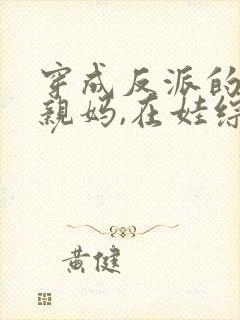 穿成反派的
親媽,在娃綜
黃健